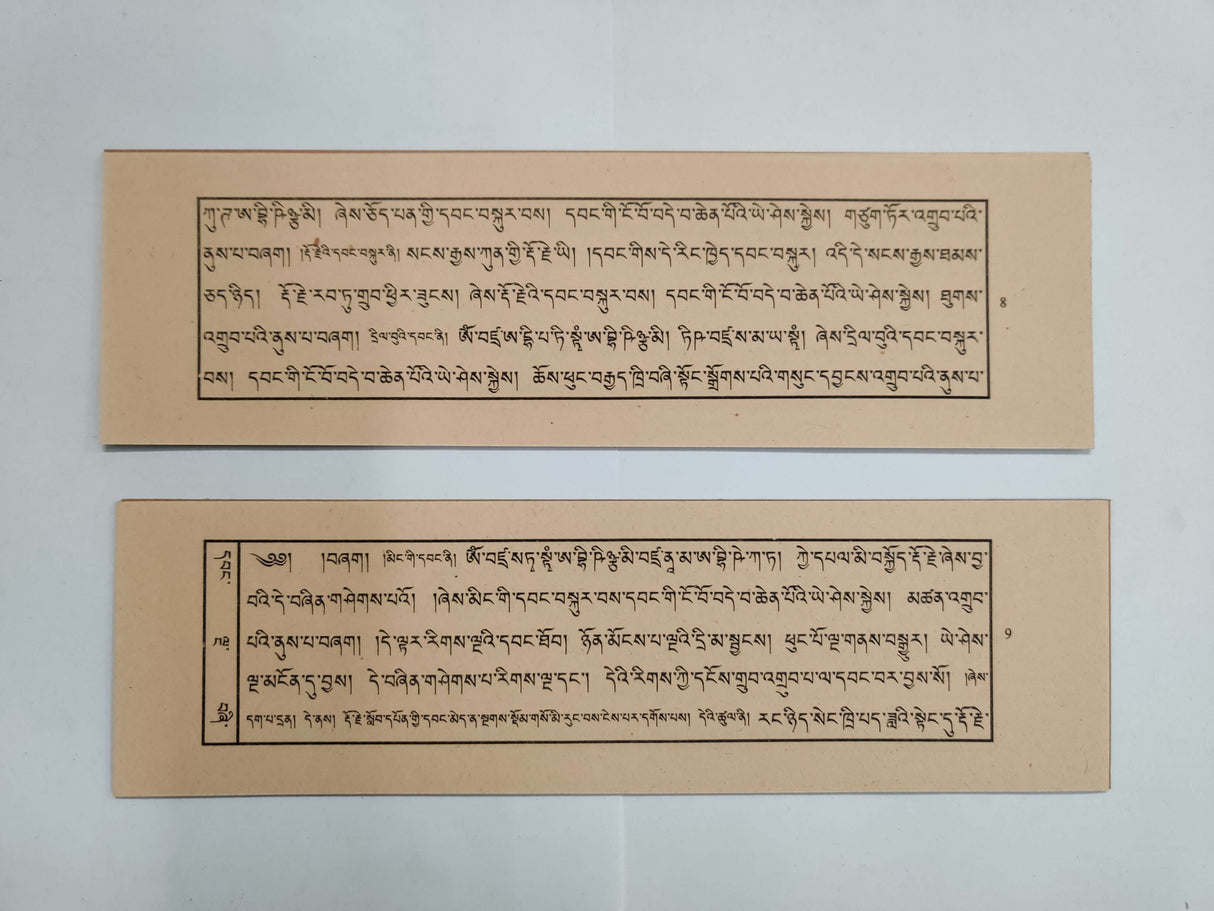 ཀུ་ཊ་ཨ་བྷི་ཥིཉྩ་མི། ཞེས་ཅོད་པན་གྱི་དབང་བསྐུར་བས། དབང་གི་ངོ་བོ་བདེ་བ་ཆེན་པོའི་ཡེ་ཤེས་སྐྱེས། གཙུག་ཏོར་འགྲུབ་པའི་
ནུས་པ་བཞག། །རྡོ་རྗེའི་དབང་བསྐུར་ནི། སངས་རྒྱས་ཀུན་གྱི་རྡོ་རྗེ་ཡི། །དབང་གིས་དེ་རིང་ཁྱེད་དབང་བསྐུར། འདི་དེ་སངས་རྒྱས་ཐམས་
ཅད་ཉིད། རྡོ་རྗེ་རབ་ཏུ་གྲུབ་ཕྱིར་ཟུངས། ཞེས་རྡོ་རྗེའི་དབང་བསྐུར་བས། དབང་གི་ངོ་བོ་བདེ་བ་ཆེན་པོའི་ཡེ་ཤེས་སྐྱེས། ཐུགས་
འགྲུབ་པའི་ནུས་པ་བཞག། དྲིལ་བུའི་དབང་ནི། ཨོཾ་བཛྲ་ཨ་དྷི་པ་ཏི་སྟྭཾ་ཨ་བྷི་ཥིཉྩ་མི། ཏིཥྛ་བཛྲ་ས་མ་ཡ་སྟྭཾ། ཞེས་དྲིལ་བུའི་དབང་བསྐུར་
བས། དབང་གི་ངོ་བོ་བདེ་བ་ཆེན་པོའི་ཡེ་ཤེས་སྐྱེས། ཆོས་ཕུང་བརྒྱད་ཁྲི་བཞི་སྟོང་སྒྲོགས་པའི་གསུང་དབྱངས་འགྲུབ་པའི་ནུས་པ་
8
༄༅། །བཞག། །མིང་གི་དབང་ནི། ཨོཾ་བཛྲ་སཏྭ་སྟྭཾ་ཨ་བྷི་ཥིཉྩ་མི་བཛྲ་ནཱ་མ་ཨ་བྷི་ཥེ་ཀ་ཏ། ཀྱེ་དཔལ་མི་བསྐྱོད་རྡོ་རྗེ་ཞེས་བྱ་
བའི་དེ་བཞིན་གཤེགས་པའོ། །ཞེས་མིང་གི་དབང་བསྐུར་བས་དབང་གི་ངོ་བོ་བདེ་བ་ཆེན་པོའི་ཡེ་ཤེས་སྐྱེས། མཚན་འགྲུབ་
པའི་ནུས་པ་བཞག། །དེ་ལྟར་རིགས་ལྔའི་དབང་ཐོབ། ཉོན་མོངས་པ་ལྔའི་དྲི་མ་སྦྱངས། ཕུང་པོ་ལྔ་གནས་བསྒྱུར། ཡེ་ཤེས་
ལྔ་མངོན་དུ་བྱས། དེ་བཞིན་གཤེགས་པ་རིགས་ལྔ་དང་། དེའི་རིགས་ཀྱི་དངོས་གྲུབ་འགྲུབ་པ་ལ་དབང་བར་བྱས་སོ། །ཞེས་
དག་པ་དྲན། དེ་ནས། རྡོ་རྗེ་སློབ་དཔོན་གྱི་དབང་མེད་ན་སྔགས་སྡོམ་གསོ་མི་རུང་བས་ངེས་པར་དགོས་པས། དེའི་ཚུལ་ནི། རང་ཉིད་སེང་ཁྲི་པད་ཟླའི་སྟེང་དུ་རྡོ་རྗེ་
9